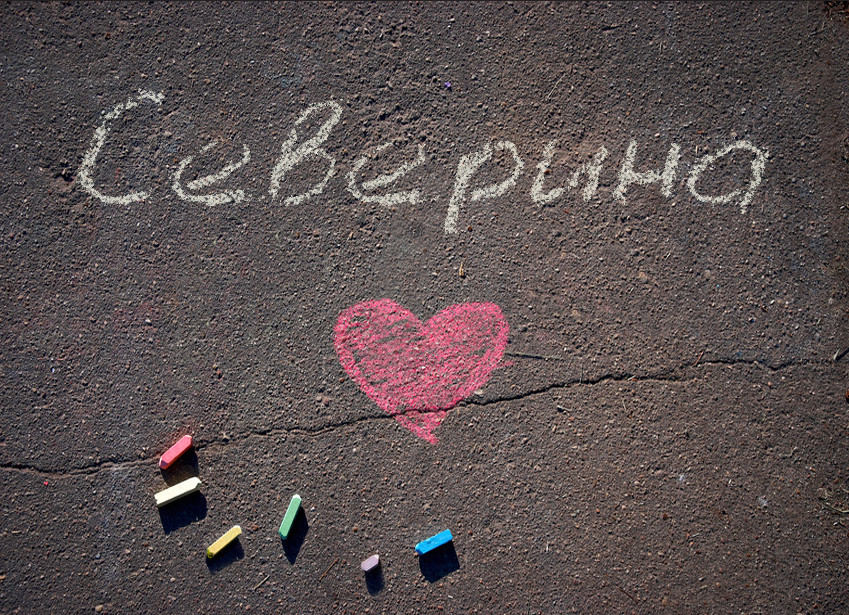 Северина